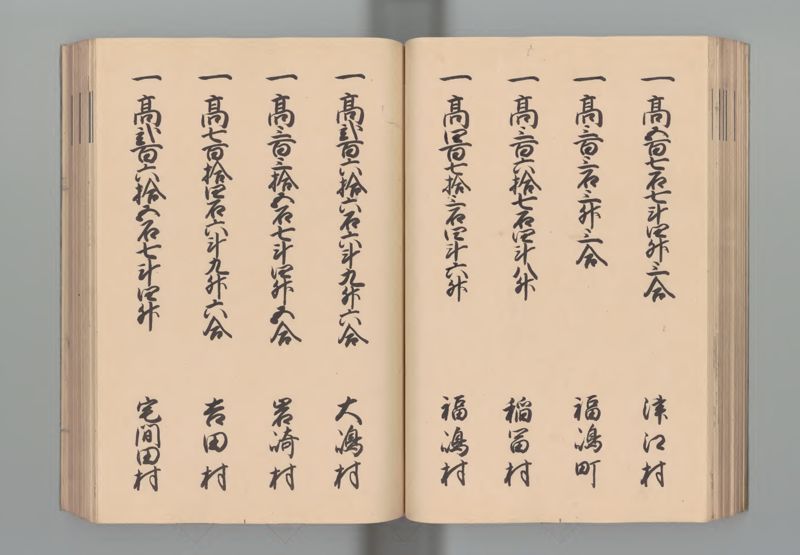 一 高五百七石七斗四升三合 津江村
一 高三百三石三升三合 福嶋町
一 高三百六拾七石四斗八升 稲冨村
一 高四百七拾三石四斗六升 福嶋村
一 高弐百六拾六石六斗九升六合 大嶋村
一 高三百三拾五石七斗四升五合 岩崎村
一 高七百拾四石六斗九升六合 吉田村
一 高弐百六拾五石七斗四升 宅間田村